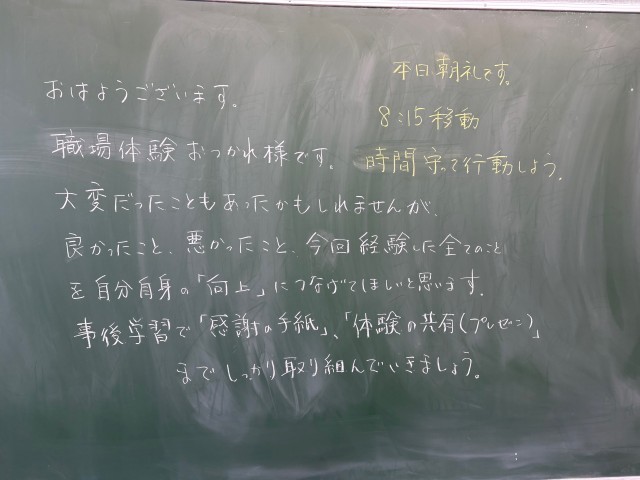 おはようございます。
職場体験おつかれ様です。
大変だったこともあったかもしれませんが、
良かったこと、悪かったこと、今回経験した全てのこと
を自分自身の「向上」につなげてほしいと思います。
事後学習で「感謝の手紙」、「体験の共有(プレゼン)」
までしっかり取り組んでいきましょう。
本日朝礼です。
8:15移動
時間守って行動しよう。